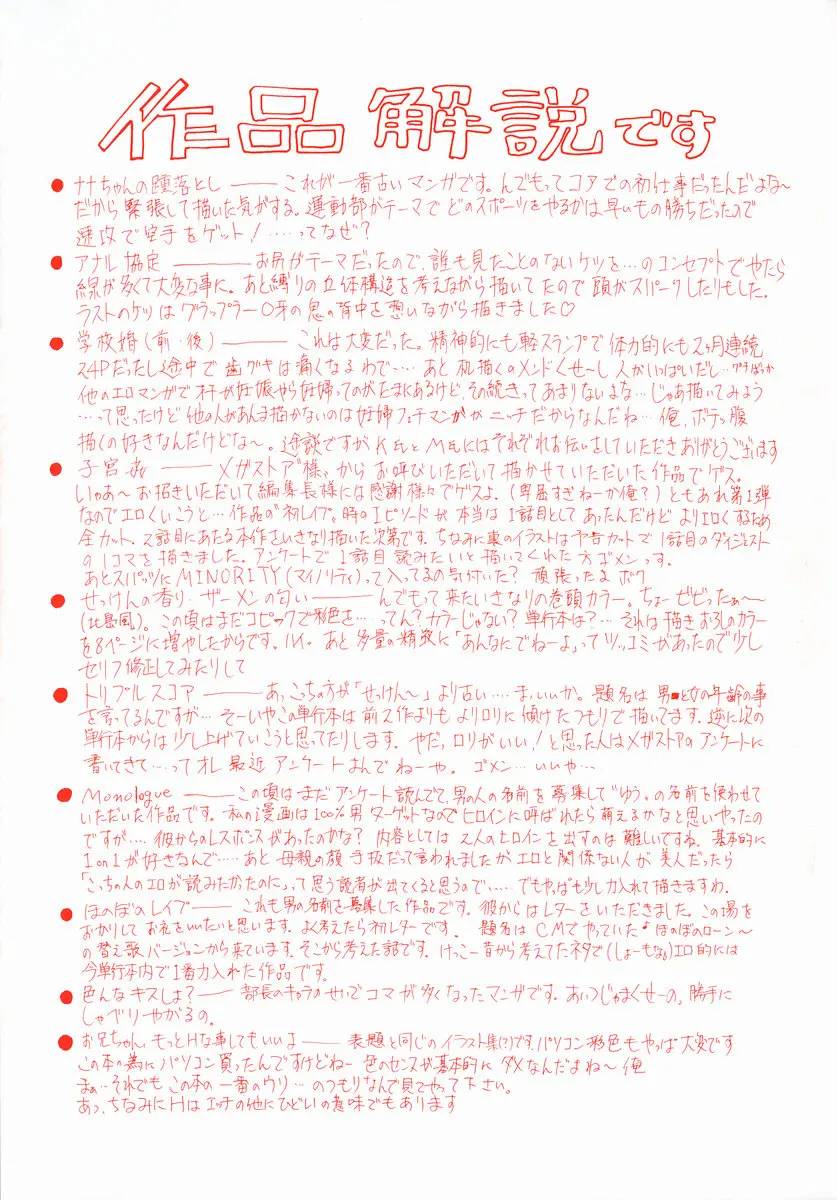 作品解説です
● ナナちゃんの堕落とし ―― これが一番古いマンガです。んでもってコアでの初仕事だったんだよな~
だから緊張して描いた気がする。運動部がテーマでどのスポーツをやるかは早いもの勝ちだったので
速攻で空手をゲット!……ってなぜ?
● アナル協定 ―― お尻がテーマだったので、誰も見たことのないケツを…のコンセプトでやたら
線が多くて大変な事に。あと縛りの立体構造を考えながら描いてたので頭がスパークしたりもした。
ラストのケツはグラップラー〇牙の鬼の背中を想いながら描きました♡
● 学校婚(前・後) ―― これは大変だった。精神的にも軽スランプで体力的にも2ヶ月連続
24Pだったし途中で歯グキは痛くなるわで…。あと机描くのメンドくせーし人がいっぱいだし…
他のエロマンガでオチが妊娠やら妊婦ってのがたまにあるけど、その続きってあまりないよな…じゃあ描いてみよう
…って思ったけど他の人があんま描かないのは妊婦フェチマンガがニッチだからなんだね…俺、ボテッ腹
描くの好きなんだけどな~。余談ですがK氏とM氏にはそれぞれお伝いをしていただきありがとうございます
● 子宮 ―― メガストア様からお呼びいただいて描かせていただいた作品でゲス。
いやあ~お招きいただいて編集長様には感謝様々でゲスよ。(卑屈すぎねーか俺?)ともあれ第1弾
なのでエロくいこうと…作品の初レイプ。時のエピソードが本当は1話目としてあったんだけどよりエロくするため
全カット。2話目にあたる本作をいきなり描いた次第です。ちなみに裏のイラストは予告カットで1話目のダイジェスト
の1コマを描きました。アンケートで1話目読みたいと描いてくれた方ゴメンっす。
あとスパッツにMINORITY(マイノリティ)って入ってるの気付いた? 頑張ったよボク
● せっけんの香り・ザーメンの匂い ―― んでもって来たいきなりの巻頭カラー。ちょービビったぁ~~
(北島風)。この頃はまだコピックで彩色を……ってん?カラーじゃない?単行本は?…それは描きおろしのカラー
を8ページに増やしたからです。ハイ。あと多量の精液に「あんなにでねーよ」ってツッコミがあったので少し
セリフ修正してみたりして
● トリプルスコア ―― あっ、こっちの方が「せっけん~」より古い…ま、いいか。題名は男と女の年齢の事
を言ってるんですが…そーいやこの単行本は前2作よりもよりロリに傾けたつもりで描いてます。逆に次の
単行本からは少し上げていこうと思ってたりします。やだ、ロリがいい!と思った人はメガストアのアンケートに
書いてきて…ってオレ最近アンケートよんでねーや。ゴメン…いいや…
● Monologue ―― この頃はまだアンケート読んでて、男の人の名前を募集して"ゆう"の名前を使わせて
いただいた作品です。私の漫画は100%男ターゲットなのでヒロインに呼ばれたら萌えるかなと思いやったの
ですが…彼からのレスポンスがあったのかな? 内容としては2人のヒロインを出すのは難しいですね。基本的に
1on1が好きなんで……あと母親の顔手抜だって言われましたがエロと関係ない人が美人だったら
「こっちの人のエロが読みたかったのに」って思う読者が出てくると思うので……でもやっぱも少し力入れて描きますわ。
● ほのぼのレイプ ―― これも男の名前を募集した作品です。彼からはレターをいただきました。この場を
おかりしてお礼をいいたいと思います。よく考えたら初レターです。 題名はCMでやっていた♪ほのぼのローン~
の替え歌バージョンから来ています。そこから考えた話です。けっこー昔から考えてたネタで(しょーもなっ)エロ的には
今単行本内で1番力入れた作品です。
● 色んなキスしよ? ―― 部長のキャラのせいでコマが多くなったマンガです。あいつじゃまくせーの。勝手に
しゃべりやがるの。
● お兄ちゃん、もっとHな事してもいいよ ―― 表題と同じのイラスト集(?)です。パソコン彩色もやっぱ大変です
この本の為にパソコン買ったんですけどねー 色のセンスが基本的にダメなんだよね~俺
まぁ…それでもこの本の一番のウリ…のつもりなんで見てやって下さい。
あっ、ちなみにHはエッチの他にひどいの意味でもあります